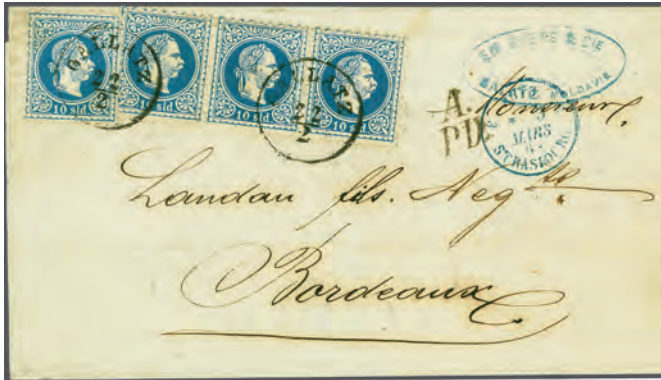 10 sld 10 sld 10 sld 10 sld
GALLATZ
22
2
GALLATZ
22
2
& CIE
GALATZ MOLDAVIE
A.
P.D.
3
MARS
STRASBOURG
Monsieur
Landau fils. Negts
Bordeaux